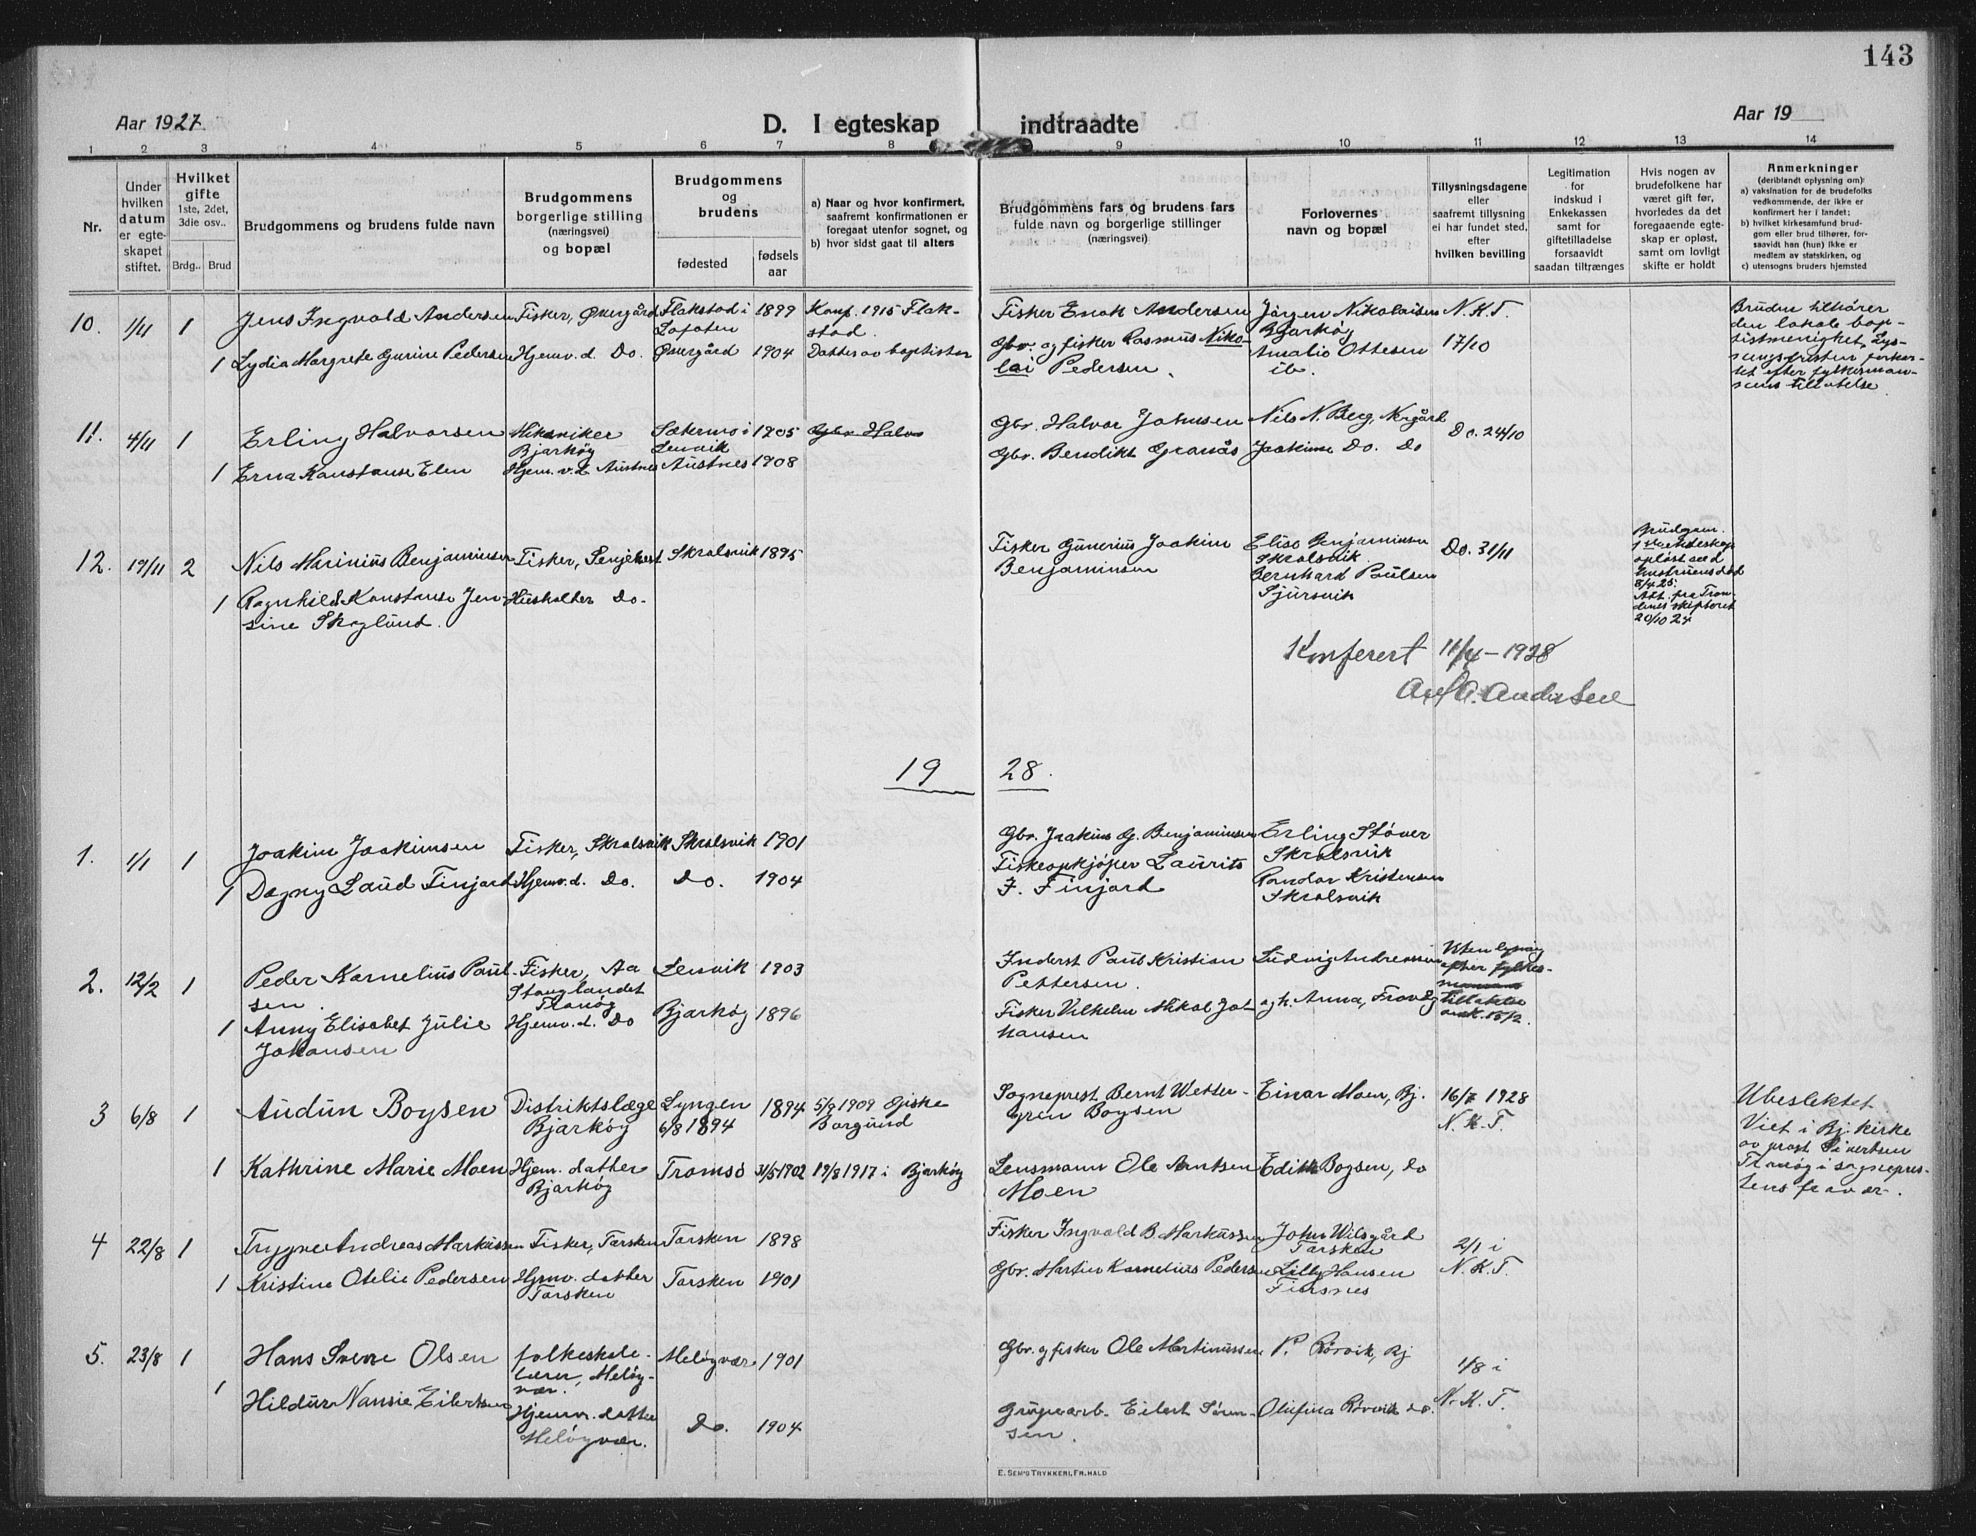 143
Aar 1927
D. I egteskap indtraadte
Aar 19
1 2 3 4 5 6 7 8 9 10 11 12 13 14
Nr.
Under hvilken datum er egteskapet stiftet.
Hvilket gifte
1ste, 2det, 3die osv..
Brdg.. Brud
Brudgommens og brudens fulde navn
Brudgommens borgerlige stilling (næringsvei) og bopæl
Brudgommens og brudens
fødested
fødsels aar
a) Naar og hvor konfirmert, saafremt konfirmationen er foregaat utenfor sognet, og
b) hvor sidst gaat til alters
Brudgommens fars og brudens fars fulde navn og borgerlige stillinger (næringsvei)
Forlovernes navn og bopæl
Tillysningsdagene eller saafremt tillysning ei har fundet sted, efter hvilken bevilling
Legitimation for indskud i Enkekassen samt for giftetilladelse forsaavidt saadan tiltrænges
Hvis nogen av brudefolkene har været gift før, hvorledes da det foregaaende egteskap er opløst, samt om lovligt skifte er holdt
Anmerkninger
(deriblandt oplysning om):
a) vaksination for de brudefolks vedkommende, der ikke er konfirmert her i landet;
b) hvilket kirkesamfund brudgom eller brud tilhører, forsaavidt han (hun) ikke er medlem av statskirken, og
c) utensogns bruders hjemsted
10. 1/11 1 Jens Ingvald Andersen Fisker, Øvergård Flakstad i Lofoten 1899 Konf. 1915 Flakstad. Fisker Enok Andersen Jörgen Nikolaisen Bjarkøy N.K.T. 17/10
1 Lydia Margrete Gurine Pedersen Hjemv. d. Do. Øvergård 1904 Datter av baptister Gbr. og fisker Rasmus Nikolai Pedersen. Amalie Ottesen ib.
Bruden tilhører
den lokale bap-
tistmenighet, Lys-
ningsfristen forkor-
tet efter fylkesman-
nens tillatelse
11. 4/11 1 Erling Halvorsen Mekaniker Bjarkøy Sætermo i Lenvik 1905 Gbr. Halv Gbr. Halvor Johnsen Nils N. Berg, Nergård Do. 24/10
1 Erna Konstanse Elen Hjem. v. d. Austnes Austnes 1908 Gbr. Bendikt Granås Joakime Do. Do
12. 19/11 2 Nils Marinius Benjaminsen Fisker, Senjehest Skrolsvik 1895 Fisker Gunerius Joakim Benjaminsen Elise Benjaminsen Skrolsvik. Bernhard Paulsen Sjursvik Do. 31/11
1 Ragnhild Konstanse Jensine Skoglund. Husholder Do.
Brudgom.
1ste ekteskap
opløst ved
hustruens död
8/4 25.
Att. fra Tron-
denes skifteret
20/10 27
Konferert 11/4 - 1928
Axel A. Andersen
19 28.
1. 1/1 1 Joakim Joakimsen Fisker, Skrolsvik Skrolsvik 1901 Gbr. Joakim G. Benjaminsen Erling Støver Skrolsvik
1 Dagny Laud Finjord Hjemv. d. Do. Do. 1904 Fiskeopkjøper Laurits J. Finjord Randor Kristensen Skrolsvik
2. 12/2 1 Peder Kornelius Paulsen. Fisker, Aa Stonglandet Tranøy Lenvik 1903 Inderst Paul Kristian Pettersen. Ludvig Andreassen
Uten lysning
efter fylkes-
mannens
tillatelse
1 Anny Elisabet Julie Johansen Hjemv. d. Do Bjarkøy 1896 Fisker Vilhelm Mikal Johansen og h. Anna,
3 6/8 1 Audun Boysen Distriktslæge Bjarkøy Lyngen 6/8 1894 1894 5/9 1909 Giske Borgund Sogneprest Bernt Wettergren Boysen Einar Moen, Bj. 16/7 1928 N.K.T.
1 Kathrine Marie Moen Hjem. datter Bjarkøy Tromsø 31/5 1902 19/8 1917 i Bjarkøy Lensmann Ole Arntsen Moen Edith Boysen, do
Ubeslektet.
Viet i Bj. kirke
av prost Sivertsen
Tranøy i sognepres-
tens fravær.
4 22/8 1 Trygve Andreas Markussen Fisker, Torsken Torsken 1898 Fisker Ingvald B. Markussen John Wilsgård Torsken 2/1 i N.K.T.
1 Kristine Otelie Pedersen Hjemv. datter Torsken Torsken 1901 Gbr. Martin Kornelius Pedersen Lilly Hansen Finsnes
5. 23/8 1 Hans Sverre Olsen folkeskolelærer, Meløyvær. Meløyvær 1901 Gbr. og fisker Ole Martinussen P. Rørvik, Bj 1/8 i N.K.T.
1 Hildur Nansie Eilertsen Hjemv. datter Meløyvær. Do. 1904 Grupearb. Eilert Sörensen. Olufina Rörvik do.
E. SEM'S TRYKKERI, FR.HALD